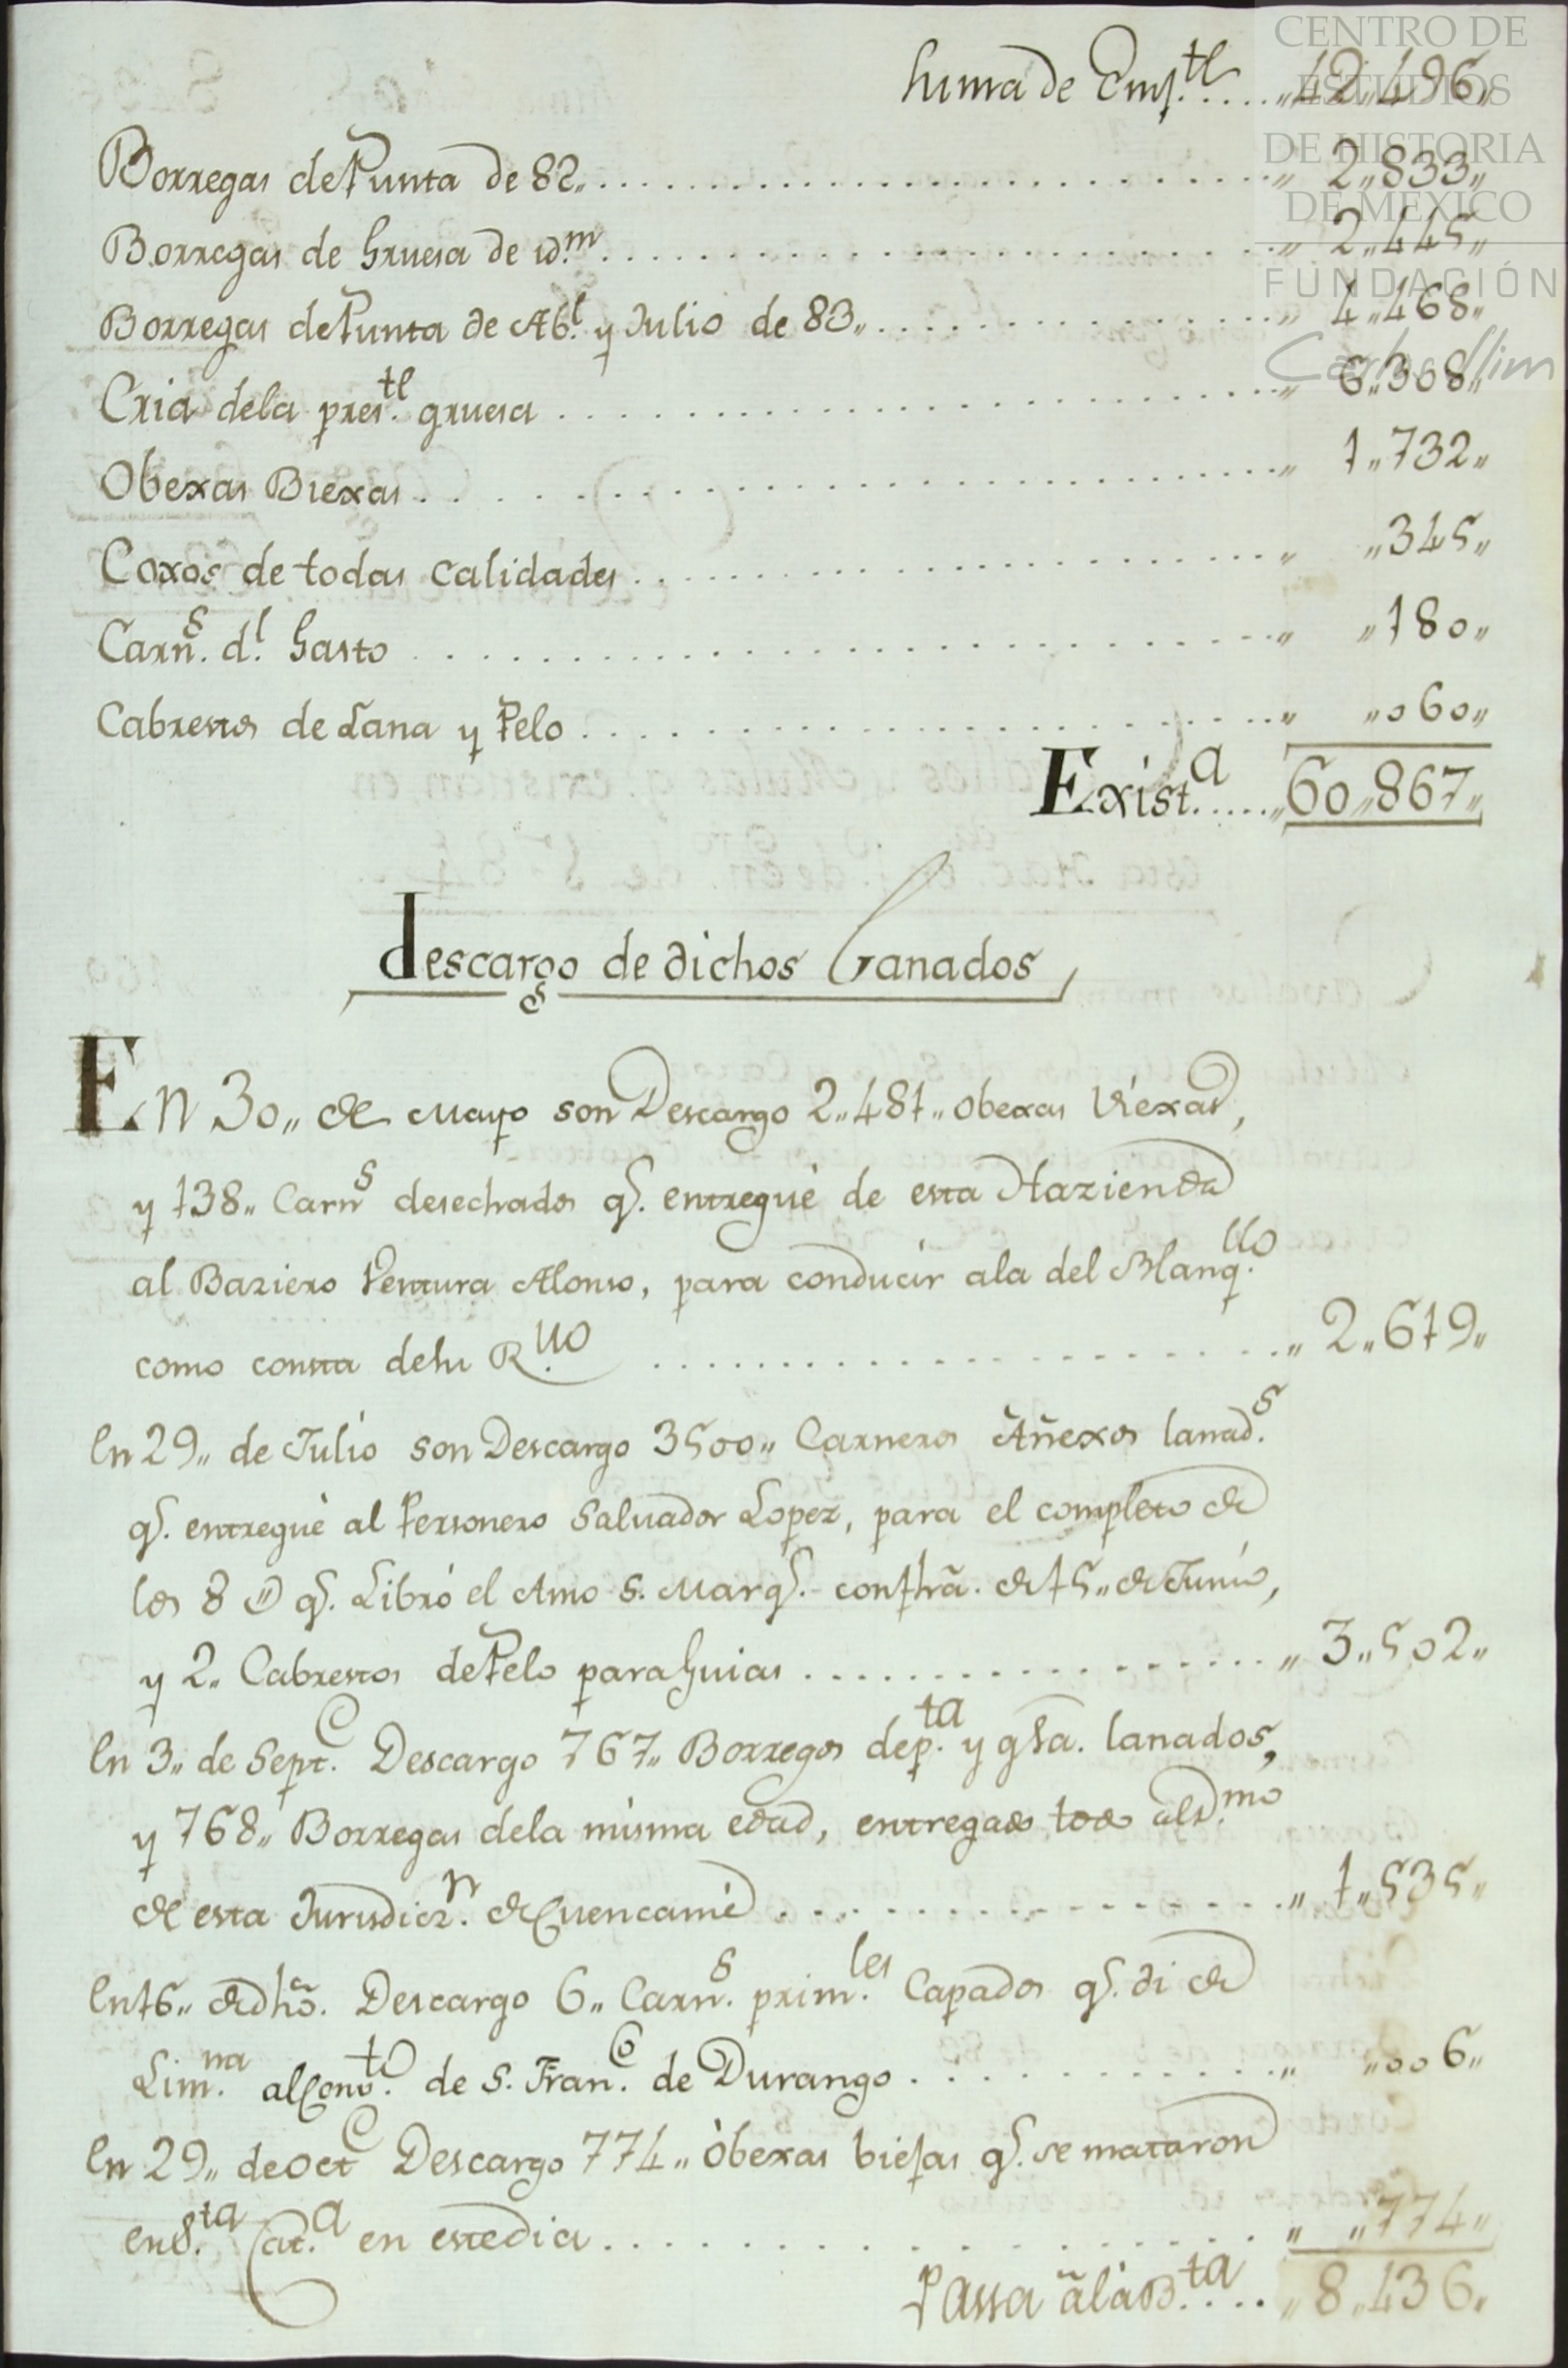 CENTRO DE
ESTUDIOS
DE HISTORIA
DE MEXICO
FUNDACIÓN
Carlos Slim
Suma de Enf.te .... „ 42„496„
Borregas de Punta de 82„ .... „ 2„833„
Borregas de Gruesa de id.m .... „ 2„445„
Borregas de Punta de Ab.l y Julio de 83„ .... „ 4„468„
Cria dela pres.te gruesa .... „ 6„308„
Obexas Biexas .... „ 1„732„
Coxos de todas calidades .... „ „345„
Carn.s d.l Gasto .... „ „180„
Cabrestos de Lana y Pelo .... „ „060„
Exist.a .... „ 60„867„
descargo de dichos Ganados
En 30„ de Mayo son Descargo 2„481„ obexas Viexas,
y 138„ Carn.s desechados q.e entregué de esta Hazienda
al Baziero Ventura Alonso, para conducir ala del Blanq.llo
como consta desu R.vo .... „ 2„619„
En 29„ de Julio son Descargo 3500„ Carneros Añexos lanad.s
q.e entregué al Personero Salvador Lopez, para el completo de
los 8 @ q.e Libró el Amo S. Marq.s con fhã. de 15„ de Junio,
y 2„ Cabrestos de Pelo para Guias .... „ 3„502„
En 3„ de Sept.e Descargo 767„ Borregos de p.ta y gsa. lanados,
y 768„ Borregas dela misma edad, entregados todos al D.mo
de esta Jurisdicz.n de Cuencamé .... „ 1„535„
En 16„ de dho. Descargo 6„ Carn.s prim.les Capados q.e di de
Lim.na al Conv.to de S. Fran.co de Durango .... „ „006„
En 29„ de Oct.e Descargo 774„ óbexas biejas q.e se mataron
en S.ta Cat.a en este dia .... „ „774„
Passa ã la B.ta .... „ 8„436„